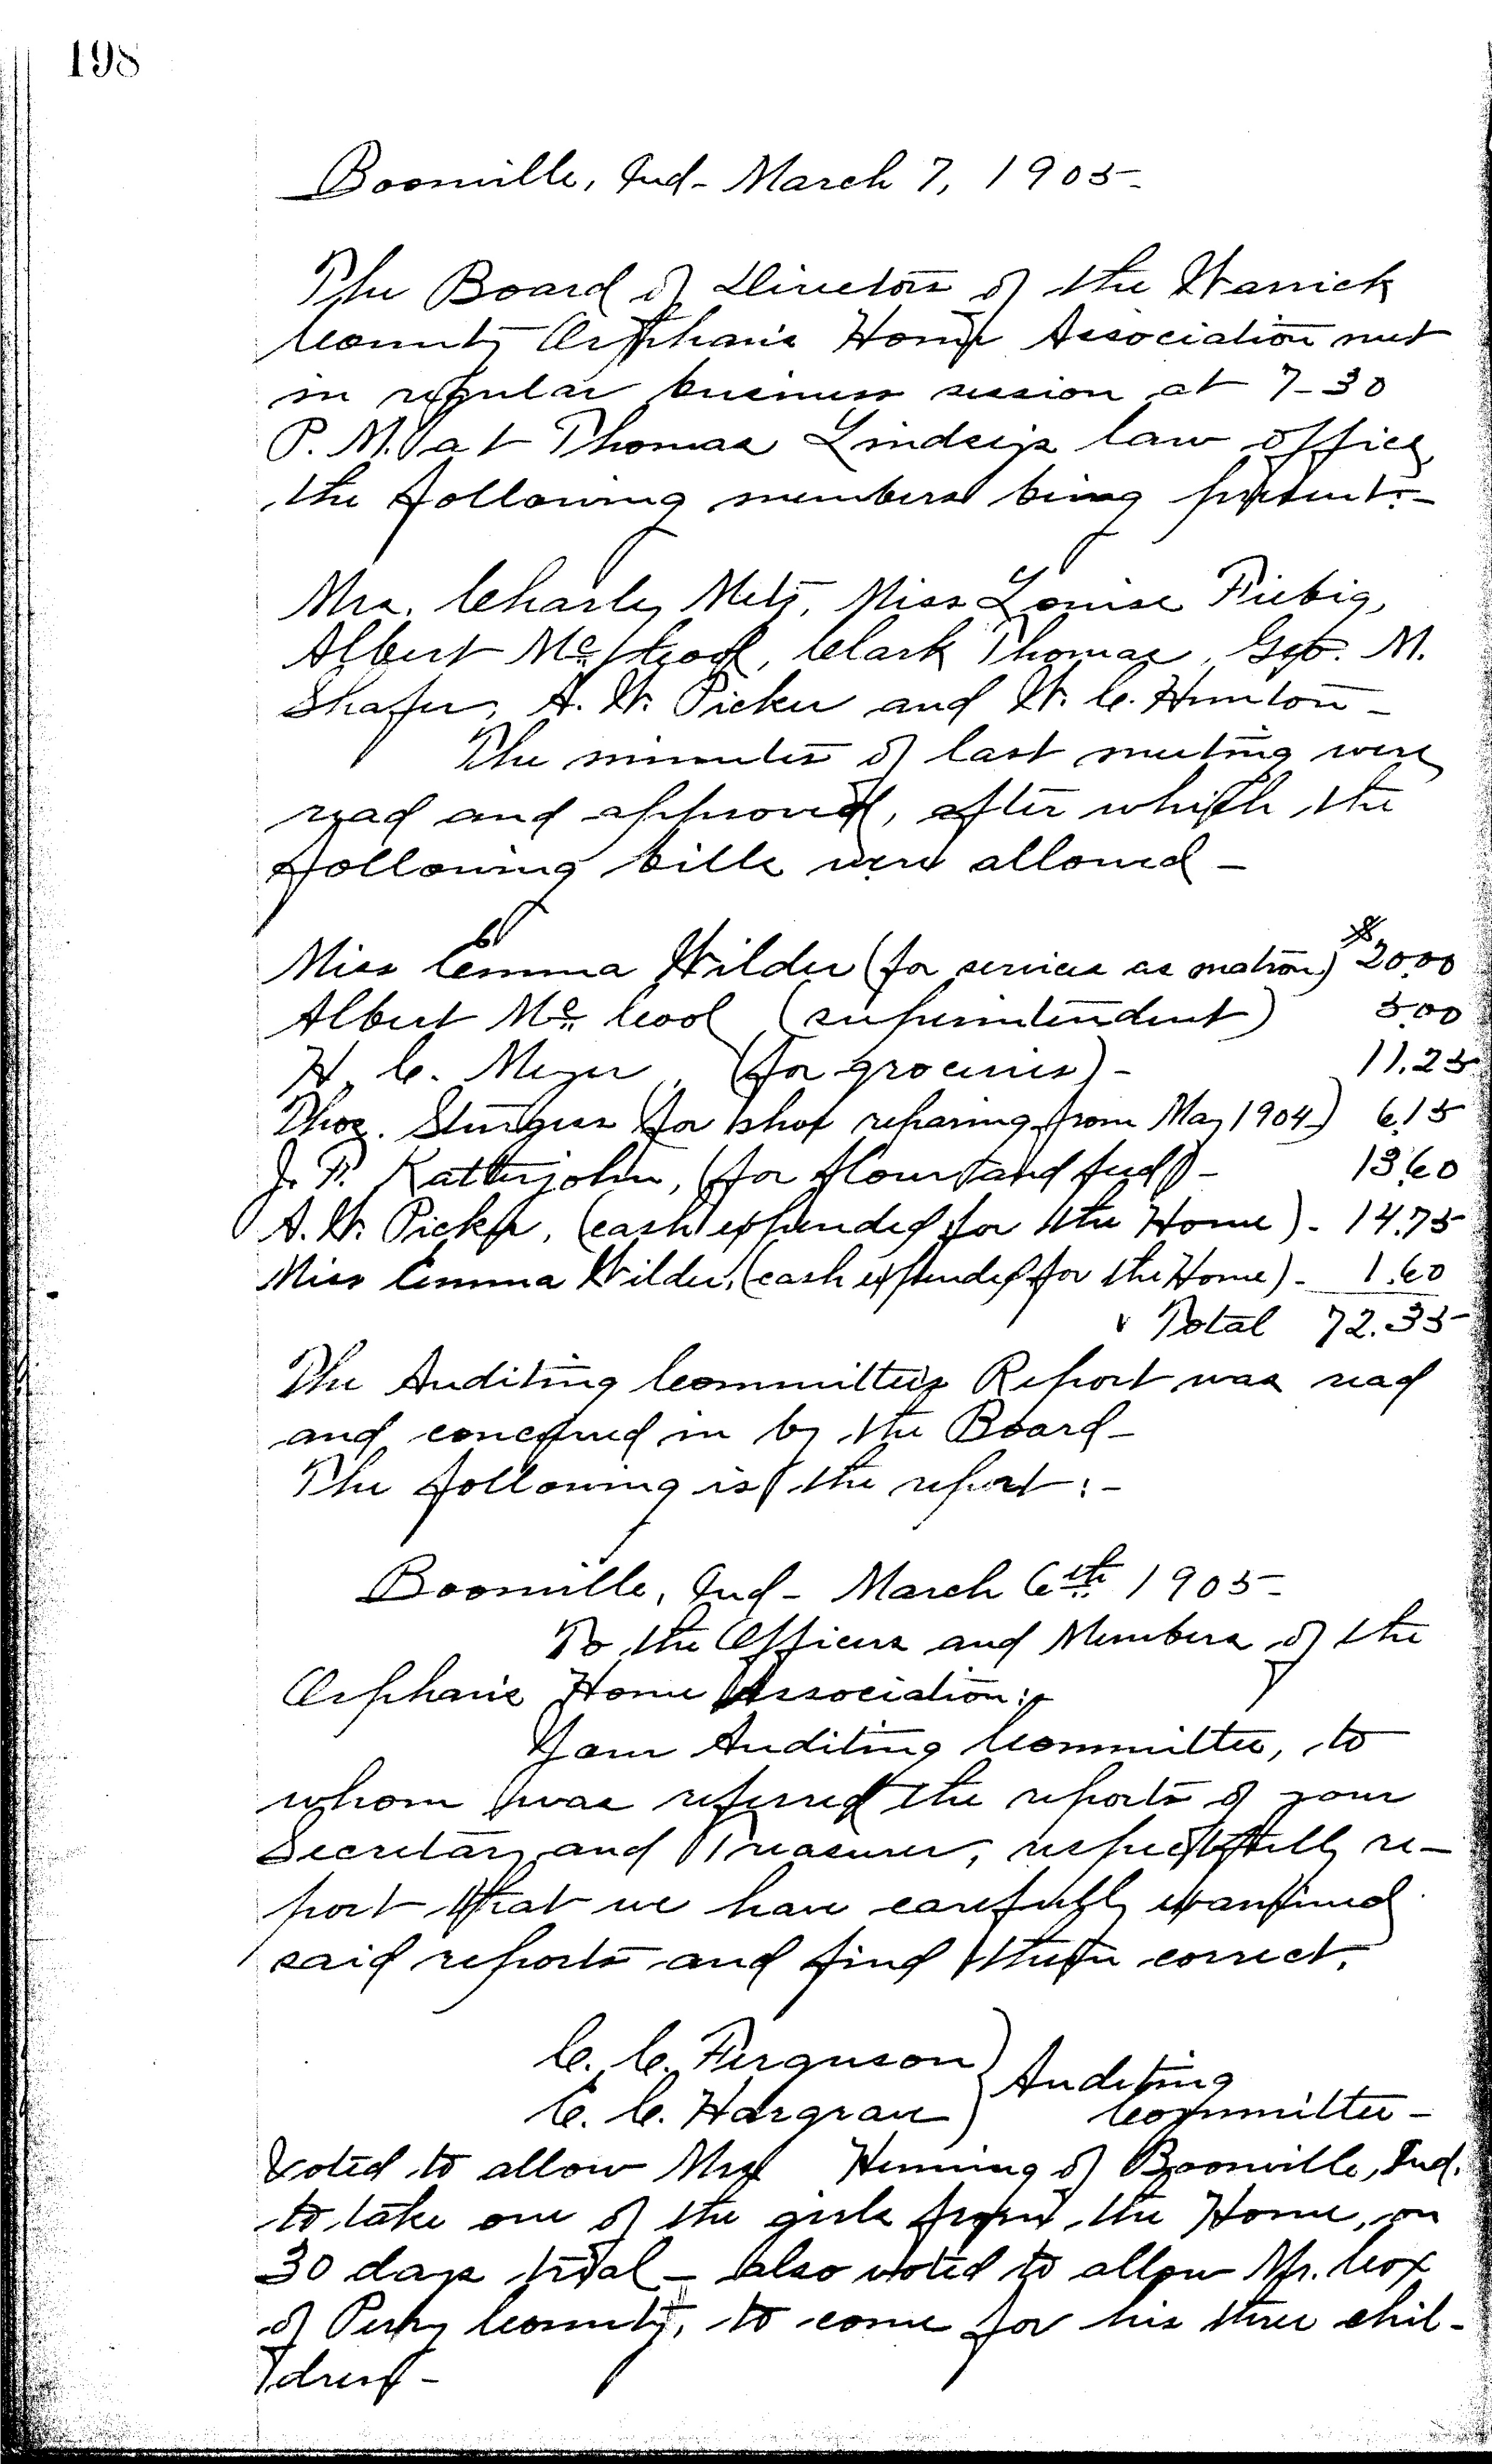 198
Boonville, Ind- March 7, 1905-
The Board of Directors of the Warrick
County Orphan's Home Association met
in regular business session at 7-30
P. M. at Thomas Lindsey's law office,
the following members being present:-
Mrs. Charley Metz, Miss Louise Fiebig,
Albert McCool, Clark Thomas, Geo. M.
Shafer, A. W. Picker and W. C. Hunton-
The minutes of last meeting were
read and approved, after which the
following bills were allowed-
Miss Emma Wilder (for services as matron) $20.00
Albert Mc. Cool (superintendent) 5.00
H. C. Meyer, (for groceries)- 11.25
Thos. Sturgess (for shoe reparing from May 1904) 6.15
J. P. Katterjohn, (for flour and feed)- 13.60
A. W. Picker, (cash expended for the Home)- 14.75
Miss Emma Wilder, (cash expended for the Home)- 1.60
Total 72.35
The Auditing Committee's Report was read
and concurred in by the Board-
The following is the report:-
Boonville, Ind- March 6th 1905-
To the Officers and Members of the
Orphan's Home Association:-
Your Auditing Committee, to
whom was referred the reports of your
Secretary and Treasurer, respectfully re-
port that we have carefully examined
said reports and find them correct.
C. C. Ferguson } Auditing
E. C. Hargrave } Committee-
Voted to allow Mrs Henning of Boonville, Ind.
to take one of the girls from the Home, on
30 days trial- also voted to allow Mr. Cox
of Perry County, to come for his three chil-
dren-